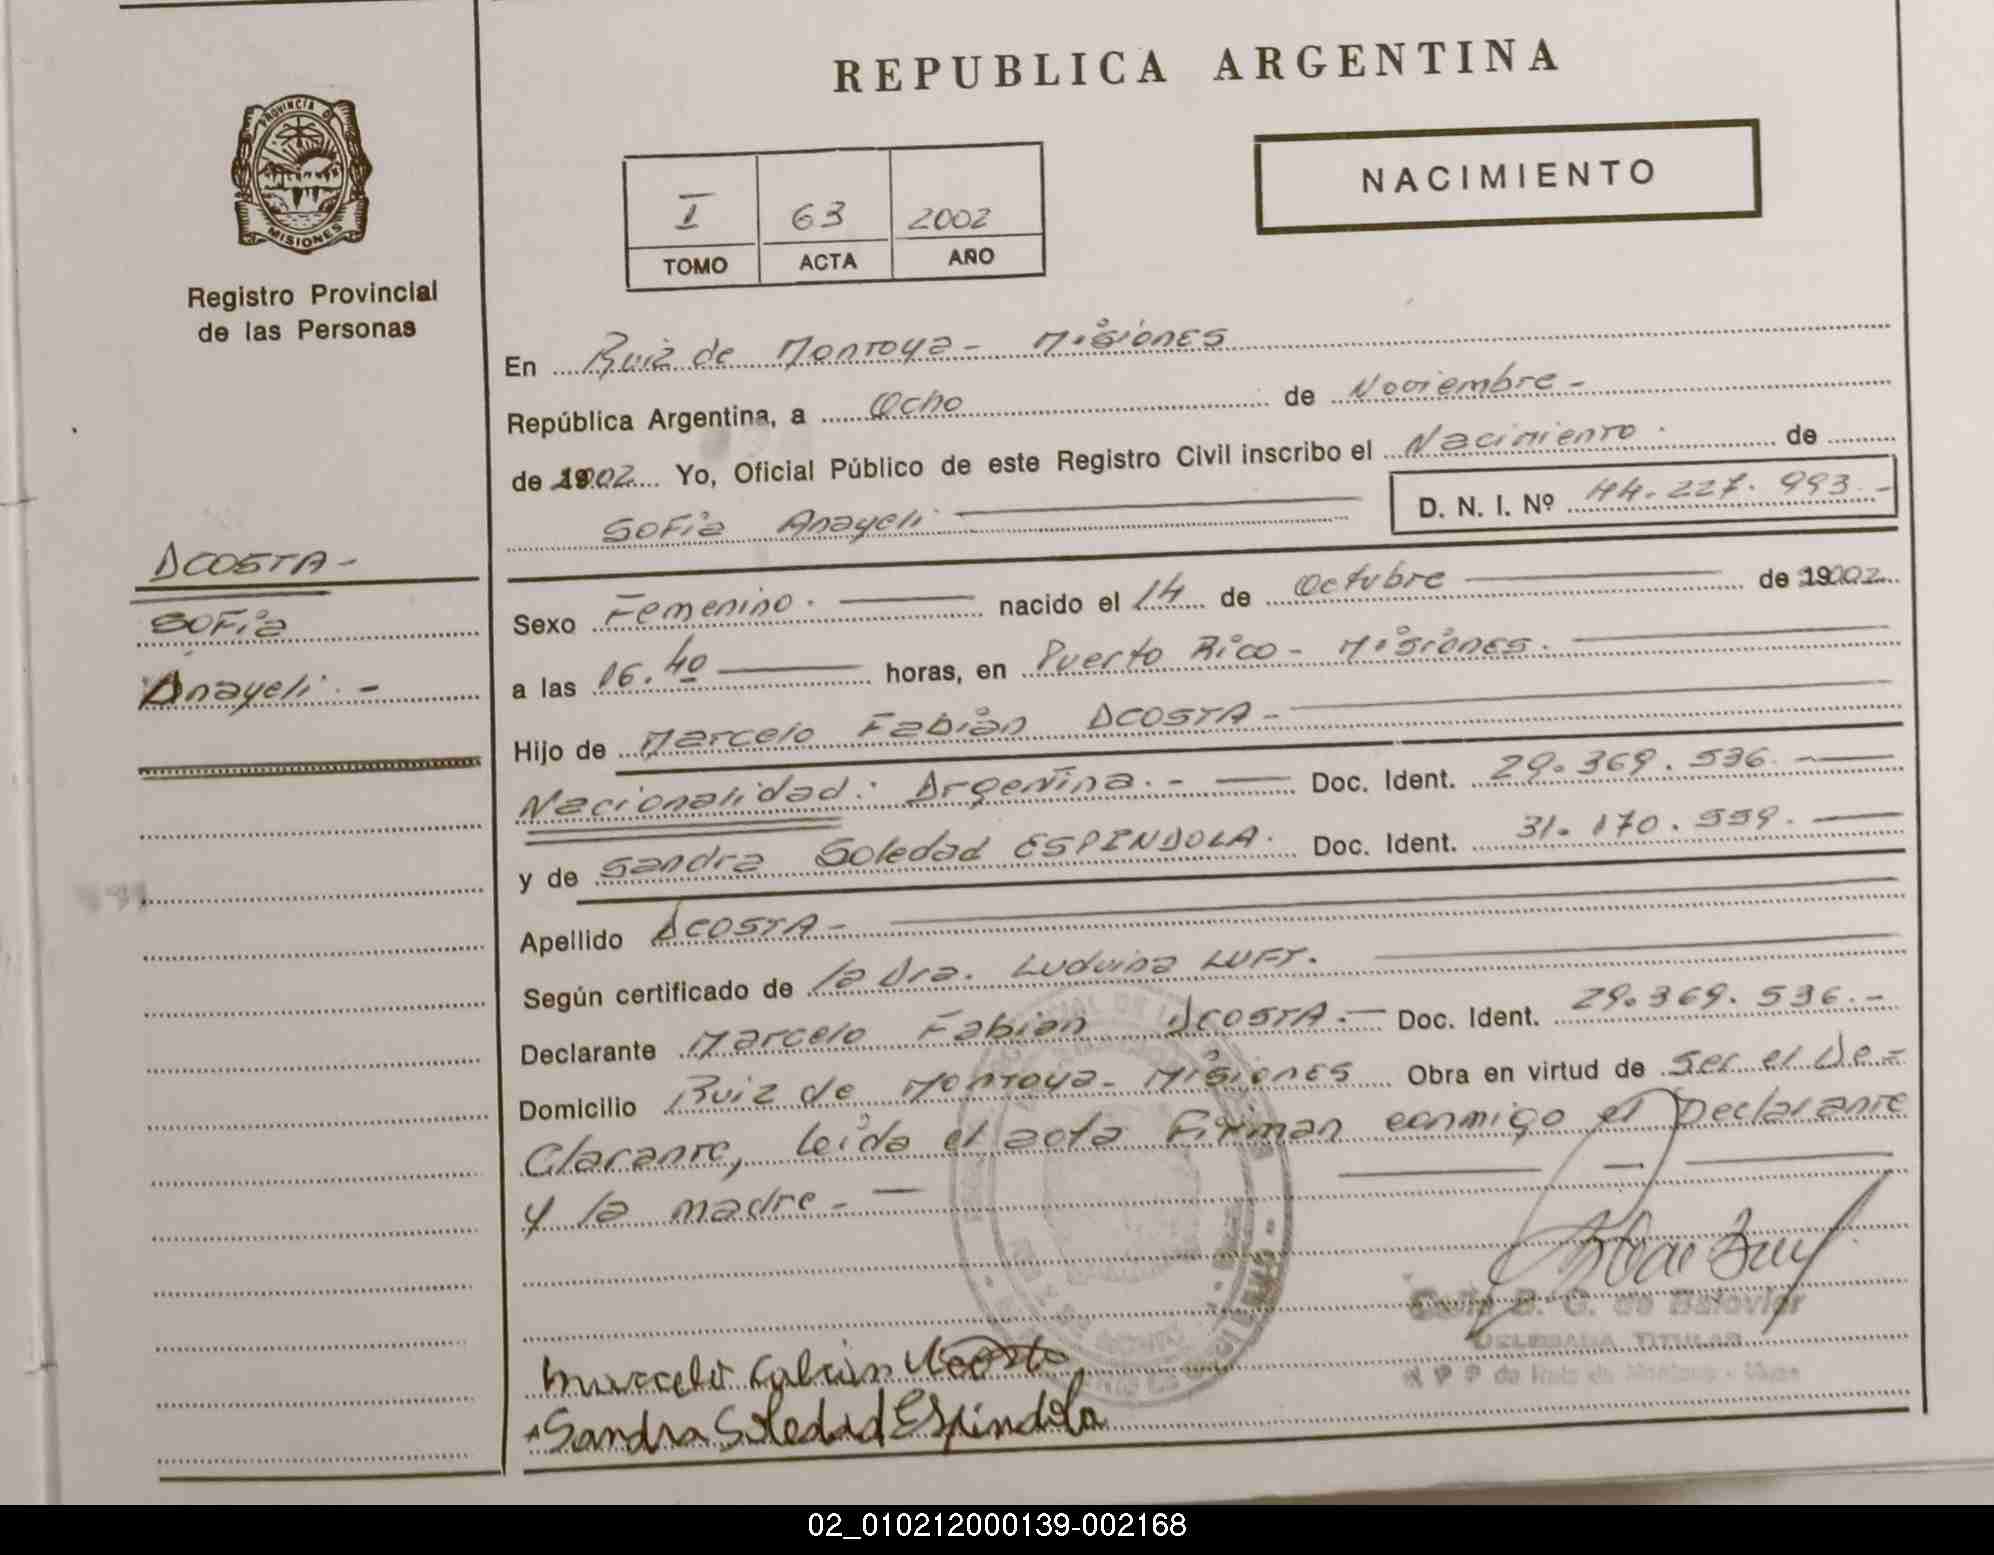 REPUBLICA ARGENTINA
PROVINCIA DE
MISIONES
Registro Provincial
de las Personas
NACIMIENTO
I 63 2002
TOMO ACTA AÑO
En Ruiz de Montoya - Misiones
República Argentina, a Ocho de Noviembre -
de 2002 Yo, Oficial Público de este Registro Civil inscribo el Nacimiento . de
Sofia Anayeli D. N. I. Nº 44.227.993.-
ACOSTA -
Sofia
Anayeli . -
Sexo Femenino . nacido el 14 de Octubre de 2002
a las 16.40 horas, en Puerto Rico - Misiones.
Hijo de Marcelo Fabián ACOSTA -
Nacionalidad: Argentina. - Doc. Ident. 29.369.536.
y de Sandra Soledad ESPINDOLA. Doc. Ident. 31.170.559.
Apellido ACOSTA -
Según certificado de la Dra. Luduina LUFT.
Declarante Marcelo Fabian ACOSTA.- Doc. Ident. 29.369.536.-
Domicilio Ruiz de Montoya - Misiones Obra en virtud de ser el De=
clarante, leída el acta Firman conmigo el Declarante
y la madre. -
Marcelo Fabián Acosta
Sandra Soledad Espíndola
B. G. de
DELEGADA TITULAR
de Ruiz de Montoya - Mnes
02_010212000139-002168